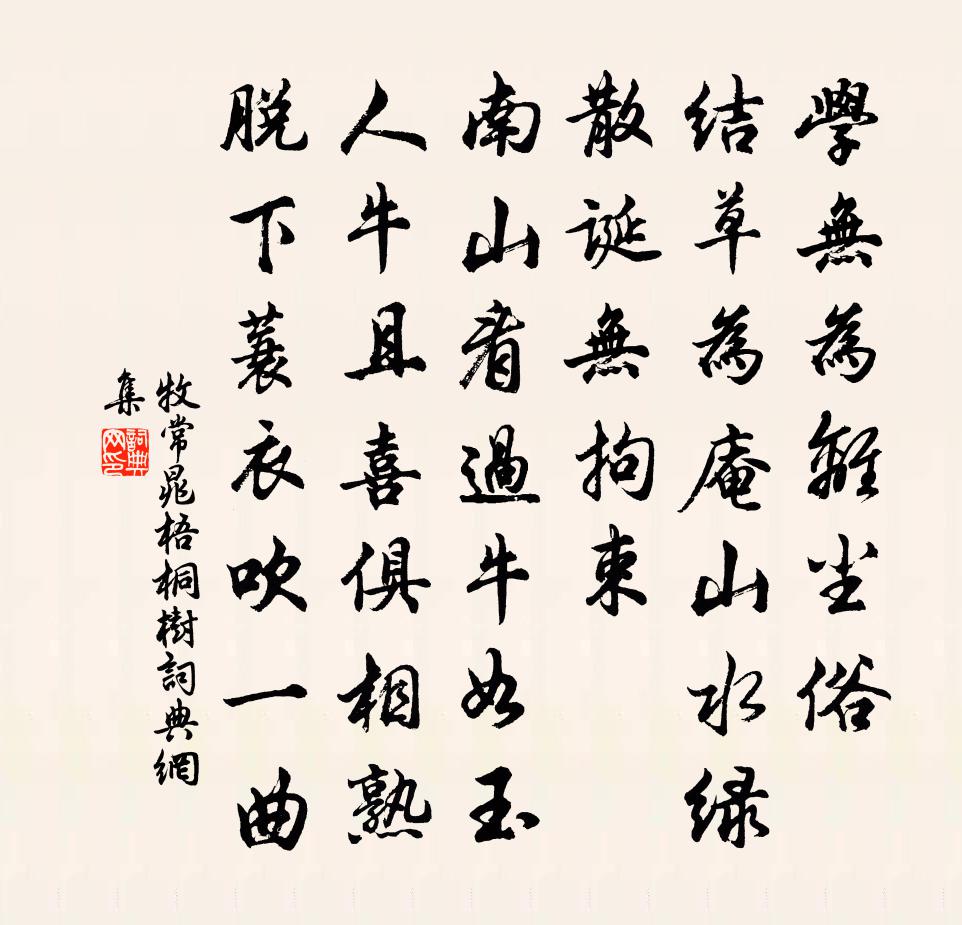 學無為離尘俗
結草為庵山水綠
散誕無拘束
南山看過牛如玉
人牛且喜俱相熟
脱下蓑衣吹一曲
牧常晁梧桐樹詞典網
集
詞典网印